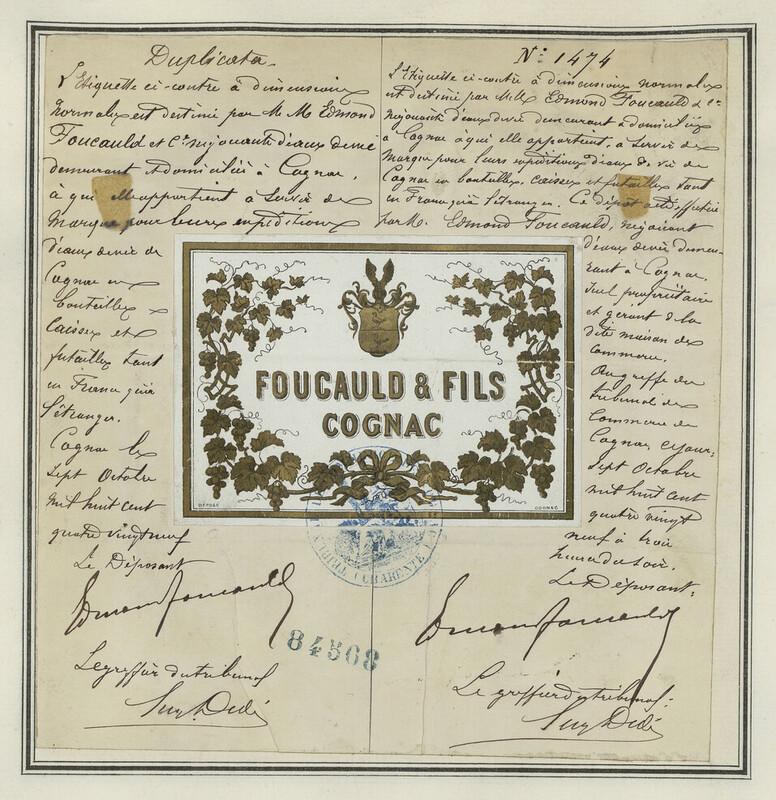 Duplicata
L'Etiquette ci-contre à dimensions
normales est destiné par M. M Edmond
Foucauld et Cie négociants d'eaux de vie
demeurant et domiciliés à Cognac,
à qui elle appartient à servir de
marque pour leurs expéditions
d'eaux de vie de
Cognac en
bouteilles
Caisses et
futailles tant
en France qu'à
l'étranger.
Cognac le
sept Octobre
mil huit cent
quatre vingt neuf
Le Déposant
Le greffier du tribunal
N: 1474
L'Etiquette ci-contre à dimensions normales
est destiné par MM. Edmond Foucauld & Cie
négociants d'eaux de vie demeurant & domiciliés
à Cognac à qui elle appartient, à servir de
Marque pour leurs expéditions d'eaux de vie de
Cognac en bouteilles, caisses et futailles tant
en France qu'à l'étranger. Ce dépôt a été effectué
par M. Edmond Foucauld, négociant
d'eaux de vie demeu-
rant à Cognac,
seul propriétaire
et gérant de la
dite maison de
Commerce.
Au greffe du
tribunal de
Commerce de
Cognac, ce jour:
sept Octobre
mil huit cent
quatre vingt
neuf à trois
heures du soir.
Le Déposant:
Le greffier du tribunal:
FOUCAULD & FILS
COGNAC
DÉPOSÉ
COGNAC
CHARENTE
84568